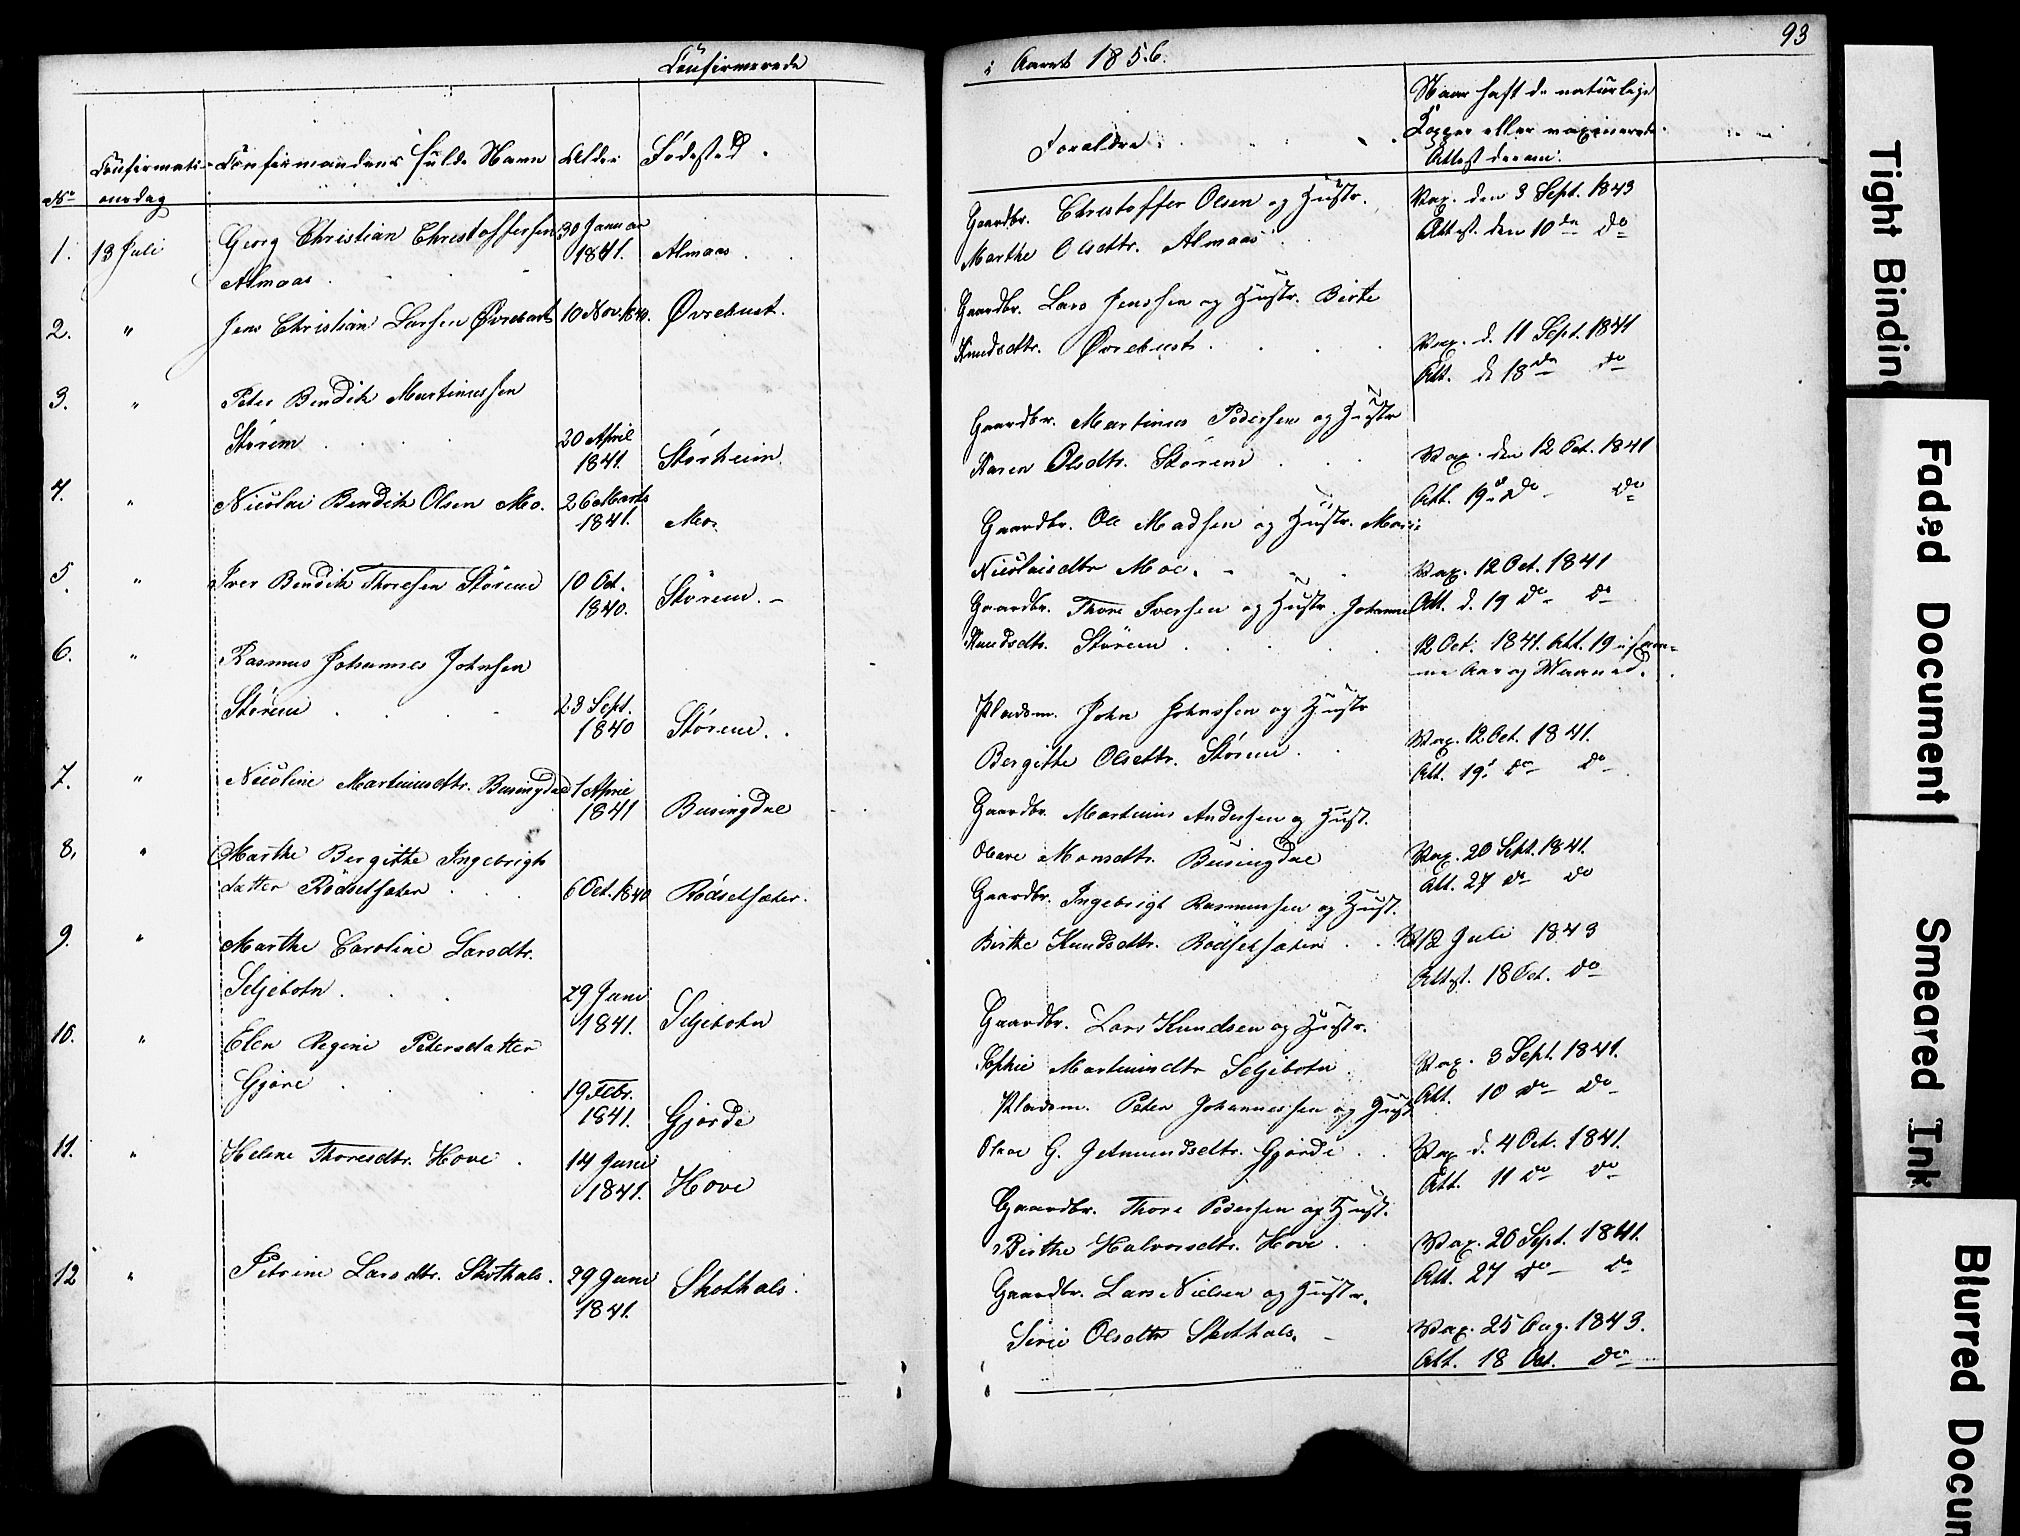 Confirmerede
No
Confirmati-
onsdag
Confirmandens fulde Navn
Alder
Fødested.
1. 13 Juli Georg Christian Christoffersen 30 Januar
Almaas 1841. Almaas
2. " Jens Christian Larsen Øvrebust 10 Nov. 1840. Øvrebust.
3. " Peter Bendik Martinussen
Störem 20 April
1841. Störheim.
4. " Nicolai Bendik Olsen Mo. 26 Marts
1841. Mo.
5. " Iver Bendik Thoresen Störem 10 Oct.
1840. Störem. -
6. " Rasmus Johannes Johnsen
Störem 23 Sept.
1840 Störem.
7. " Nicoline Martinusdtr. Busingdal 1 April
1841 Busingdal
8. " Marthe Bergithe Ingebrigts
datter Rödsetsæter 6 Oct. 1840 Rödsetsæter.
9. " Marthe Caroline Larsdtr.
Seljebotn. 29 Juni
1841. Seljebotn
10. " Elen Regine Petersdatter
Gjøre 19 Febr.
1841. Gjørde
11. " Helene Thoresdtr. Hove 14 Juni
1841. Hove
12 " Petrine Larsdtr. Skothals. 29 Juni
1841. Skothals.
i Aaret 1856.
93
Forældre
Naar haft de naturlige
Kopper eller vaxinerede.
Attest derom.
Gaardbr. Christoffer Olsen og Hustr.
Marthe Olsdttr. Almaas
Vax. den 3 Sept. 1843
Attest. den 10de do
Gaardbr. Lars Jenssen og Hustr. Birte
Knudsdtr. Øvrebust
Vax. d. 11 Sept. 1841
Att. d 18de do
Gaardbr. Martinus Pedersen og Hustr
Karen Olsdtr. Störem
Vax. den 12 Oct. 1841
Att. 19d do do
Gaardbr. Ole Madsen og Hustr. Mari
Nicolaisdtr Moe.
Vax. 12 Oct. 1841
Att. d. 19 do do
Gaardbr. Thore Iversen og Hustr. Johanne
Knudsdtr. Störem
12 Oct. 1841. Att. 19 i sam-
me Aar og Maaned.
Pladsm. John Johnssen og Hustr
Bergitte Olsdttr. Störem
Vax. 12 Oct. 1841.
Att. 19d do do
Gaardbr. Martinus Andersen og Hust.
Olave Monsdtr. Busingdal
Vax. 20 Sept. 1841.
Att. 27 do do
Gaardbr. Ingebrigt Rasmussen og Hust.
Birthe Knudsdtr. Rödsetsæter
Juli 1843
Attest. 18 Oct. do
Gaardbr. Lars Knudsen og Hustr.
Sophie Martinusdtr Seljebotn
Vax. 3 Sept. 1841.
Att. 10 do do
Pladsm. Peter Johannessen og Hust
Olave G. Getmundsdtr. Gjørde
Vax d. 4 Oct. 1841.
Att. 11 do do
Gaardbr. Thore Pedersen og Hust.
Birthe Halvorsdtr. Hove
Vax. 20 Sept. 1841.
Att. 27 do do
Gaardbr. Lars Nielsen og Hustr.
Sirie Olsdtr Skothals.
Vax. 25 Aug. 1843.
Att. 18 Oct. do
Tight Bindin
Faded Document
Smeared Ink
Blurred Docum